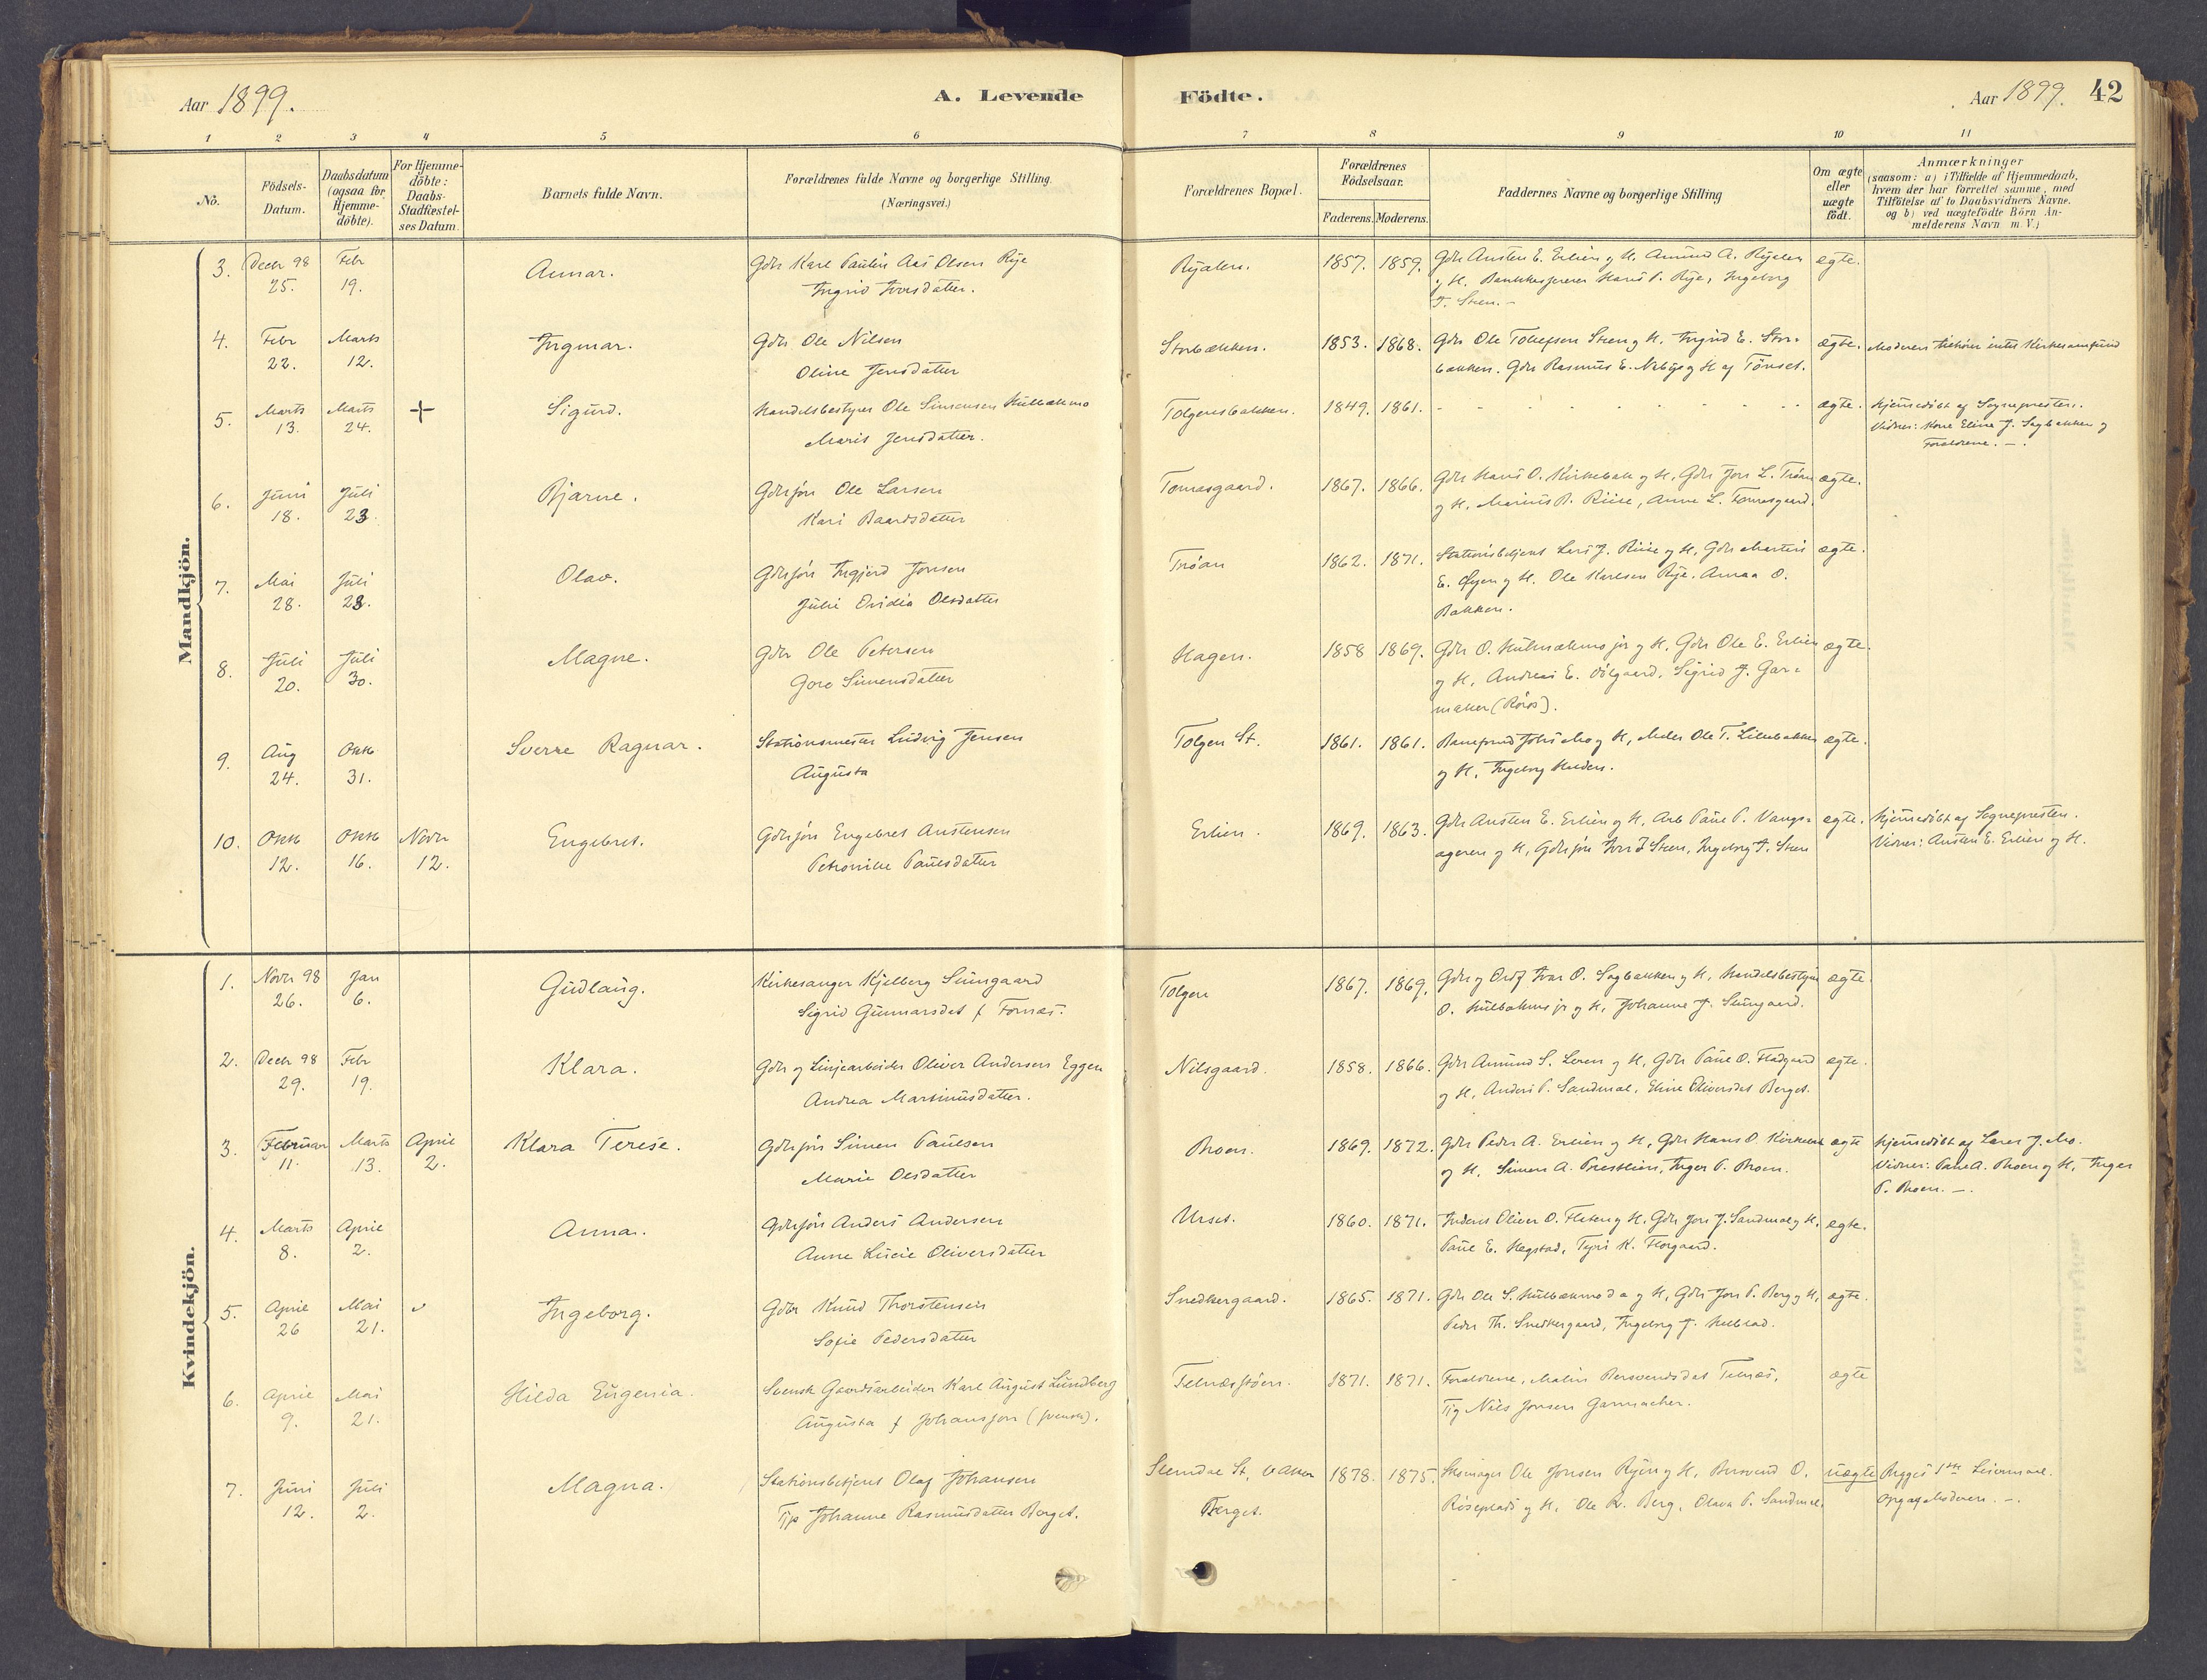 Aar 1899.
A. Levende Födte.
Aar 1899. 42
1 2 3 4 5 6 7 8 9 10 11
No.
Födsels-Datum.
Daabsdatum (ogsaa for Hjemme-döbte).
For Hjemme-döbte: Daabs-Stadfæstel-ses Datum.
Barnets fulde Navn.
Forældrenes fulde Navne og borgerlige Stilling.
(Næringsvei.)
Forældrenes Bopæl.
Forældrenes Födselsaar.
Faderens. Moderens.
Faddernes Navne og borgerlige Stilling
Om ægte eller uægte födt.
Anmærkninger
(saasom: a) i Tilfælde af Hjemmedaab,
hvem der har forrettet samme, med
Tilföielse af to Daabsvidners Navne.
og b) ved uægtefödte Börn An-
melderens Navn m. V.)
Mandkjön.
3. Decbr 98 25. Febr 19. Annar.
Gdbr Karl Paulin Aas Olsen Rye
Ingrid Iversdatter.
Ryalen. 1857. 1859.
Gdbr Austen E. Erlien og H. Amund A. Ryalen
og H. Hans P. Rye, Ingeborg
J. Steen.
ægte.
4. Febr 22. Marts 12. Ingmar.
Gdbr Ole Nilsen
Oline Jensdatter
Storbækken. 1853. 1868.
Gdbr Ole Tollefsen Steen og H. Ingrid E. Stor-
bækken. Gdbr Rasmus E. Nebye og H af Tönset.
ægte. Moderen tilhörer intet Kirkesamfund
5. Marts 13. Marts 24. + Sigurd.
Handelsbestyrer Ole Simensen Kulbækmo
Marit Jensdatter.
Tolgensbakken. 1849. 1861.
ægte. Hjemmedöbt af Sognepresten.
Vidner: Kone Eline J. Sagbakken og
Forældrene.
6. Juni 18. Juli 23. Bjarne.
Gdbrsön Ole Larsen
Kari Baardsdatter
Tomasgaard. 1867. 1866.
Gdbr Hans O. Kirkebak og H, Gdbr Jon L. Tröan
og H. Marius B. Riise, Anne L. Tomasgaard.
ægte.
7. Mai 28. Juli 23. Olav.
Gdbrsön Ingjerd Jonsen
Julie Ovidia Olsdatter
Tröan 1862. 1871.
Stationsbetjent Lars J. Riise og H, Gdbr Martin
E. Öyen og H. Ole Karlsen Rye. Anna O.
Bakken.
ægte.
8. Juli 20. Juli 30. Magne.
Gdbr Ole Petersen
Goro Simensdatter
Hagen. 1858 1869.
Gdbr O. Kulbækmo jr og H, Gdbr Ole E. Erlien
og H, Andreas E. Sigrid J. Gar-
maker (Röros).
ægte.
9. Aug 24. Oktb 31. Sverre Ragnar.
Stationsmester Ludvig Jensen
Augusta
Tolgen St. 1861. 1861.
Johs Mo og H, Ole T. Lillebakken
og H, Ingeborg
ægte.
10. Oktb 12. Oktb 16. Novbr 12. Engebret.
Gdbrsön Engebret Austensen
Petronille Paulsdatter
Erlien. 1869. 1863.
Gdbr Austen E. Erlien og H, Arb Paul P. Vangs-
ageren og H, Gdbrsön Iver J Steen, Ingeborg J. Steen
ægte. Hjemmedöbt af Sognepresten.
Vidner: Austen E. Erlien og H.
Kvindekjön.
1. Novbr 98 26. Jan 6. Gudlaug.
Kirkesanger Kjelberg Simgaard
Sigrid Gunnarsdat f Fornæs.
Tolgen 1867. 1869.
Gdbr og Ordf Ivar O. Sagbakken og H, Handelsbestyrer
O. Kulbækmo jr og H, Johanne J. Simgaard.
ægte.
2. Decbr 98 29. Febr 19. Klara.
Gdbr og Linjearbeider Oliver Andersen Eggen
Andrea Martinusdatter.
Nilsgaard. 1858. 1866.
Gdbr Amund S. Leren og H, Gdbr Paul O.
og H, Anders P. Sandmæl, Eline Oliversdat Berget.
ægte.
3. Februar 11. Marts 13. April 2. Klara Terese.
Gdbrsön Simen Paulsen
Marie Olsdatter
Moen. 1869. 1872.
Gdbr Peder A. Erlien og H, Gdbr Hans O. Kirkebak
og H, Simen A. Prestlien, Inger P. Moen.
ægte Hjemmedöbt af Lærer J. Mo.
Vidner: Paul A. Moen og H, Inger
P. Moen.
4. Marts 8. April 2. Anna.
Gdbrsön Anders Andersen
Anne Lucie Oliversdatter
Urset. 1860. 1871.
Inderst Oliver O. Flaten og H. Gdbr Jon J. Sandmæl og H,
Paul E. Hegstad, Tyri K. Florgaard.
ægte.
5. April 26 Mai 21. Ingeborg.
Gdbr Knud Thorstensen
Sofie Pedersdatter
Snedkergaard. 1865. 1871.
Gdbr Ole S. Kulbækmo d a og H, Gdbr Jon P. Berg og H,
Peder Th. Snedkergaard, Ingeborg J.
ægte.
6. April 9. Mai 21. Hilda Eugenia.
Svensk Gaardsarbeider Karl August Lundberg
Augusta f Johansson (svensk).
Telnæsstöen. 1871. 1871.
Forældrene, Malin Bersvendsdat Telnæs,
Tjg Nils Jonsen Garmaker.
ægte
7. Juni 12. Juli 2. Magna.
Stationsbetjent Olaf Johansen
Tjp Johanne Rasmusdatter Berget.
Stemdal St, Berget. 1878. 1875.
Skomager Ole Jonsen Ryen og H, Bersvend O.
Röseplads og H. Ole R. Berg. Olava P. Sandmæl.
uægte Begges 1ste Leiermaal.
Opg af Moderen.